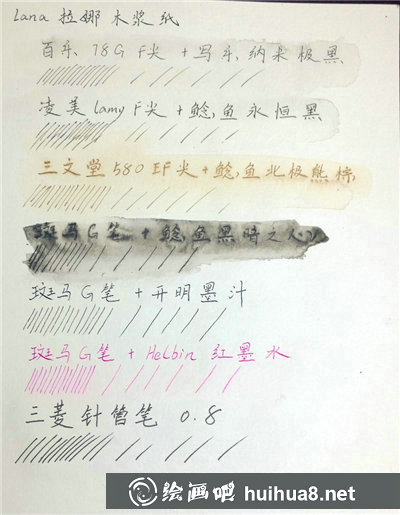 Lana 拉娜木浆纸
百乐 78G F尖 + 写乐纳米极黑
凌美 lamy F尖 + 鲶鱼永恒黑
三文堂 580 EF尖 + 鲶鱼北极熊棕
斑马G笔 + 鲶鱼黑暗之心
斑马G笔 + 开明墨汁
斑马G笔 + Helbin 红墨水
三菱针管笔 0.8
绘画吧 huihua8.net